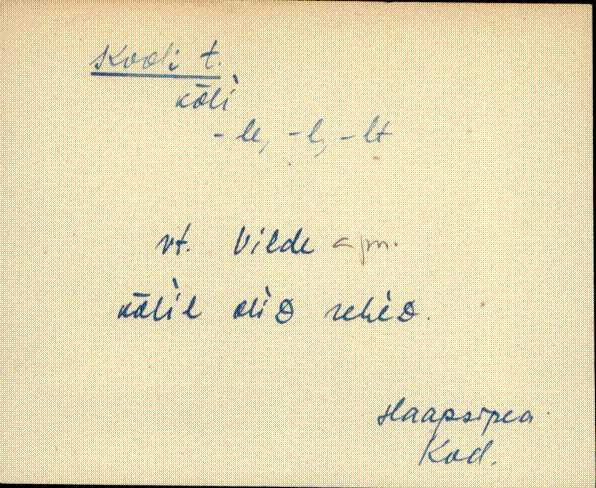 Kooli t.
kȭli
-le, -l, -lt
vt. Vilde apm.
kȭlil oliD reheD.
Haapsipea
Kod.